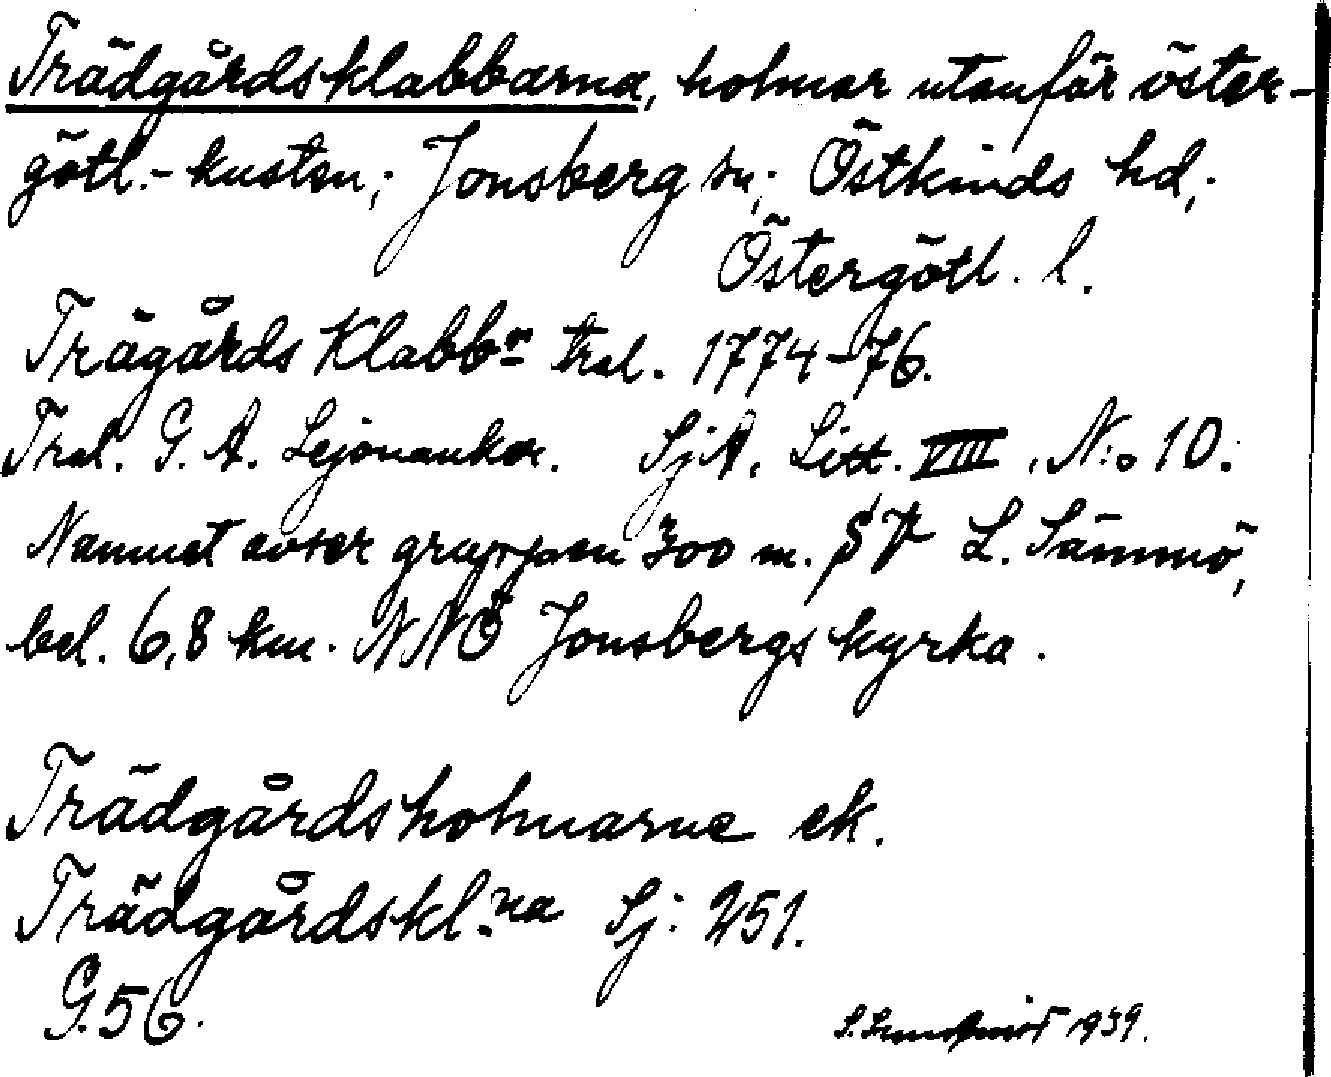 Trädgårdsklabbarna, holmar utanför öster-
götl.-kusten; Jonsberg sn; Östkinds hd;
Östergötl. l.
Trägårds Klabbr tral. 1774-76.
Tral. G. A. Lejonankar. SjA. Litt. VIII. N:o 10.
Namnet avser gruppen 300 m. SV L. Sämmö,
bel. 6,8 km. NNÖ Jonsbergs kyrka.
Trädgårdsholmarne ek.
Trädgårdskl.na Sj: 251.
G. 56.
1939.